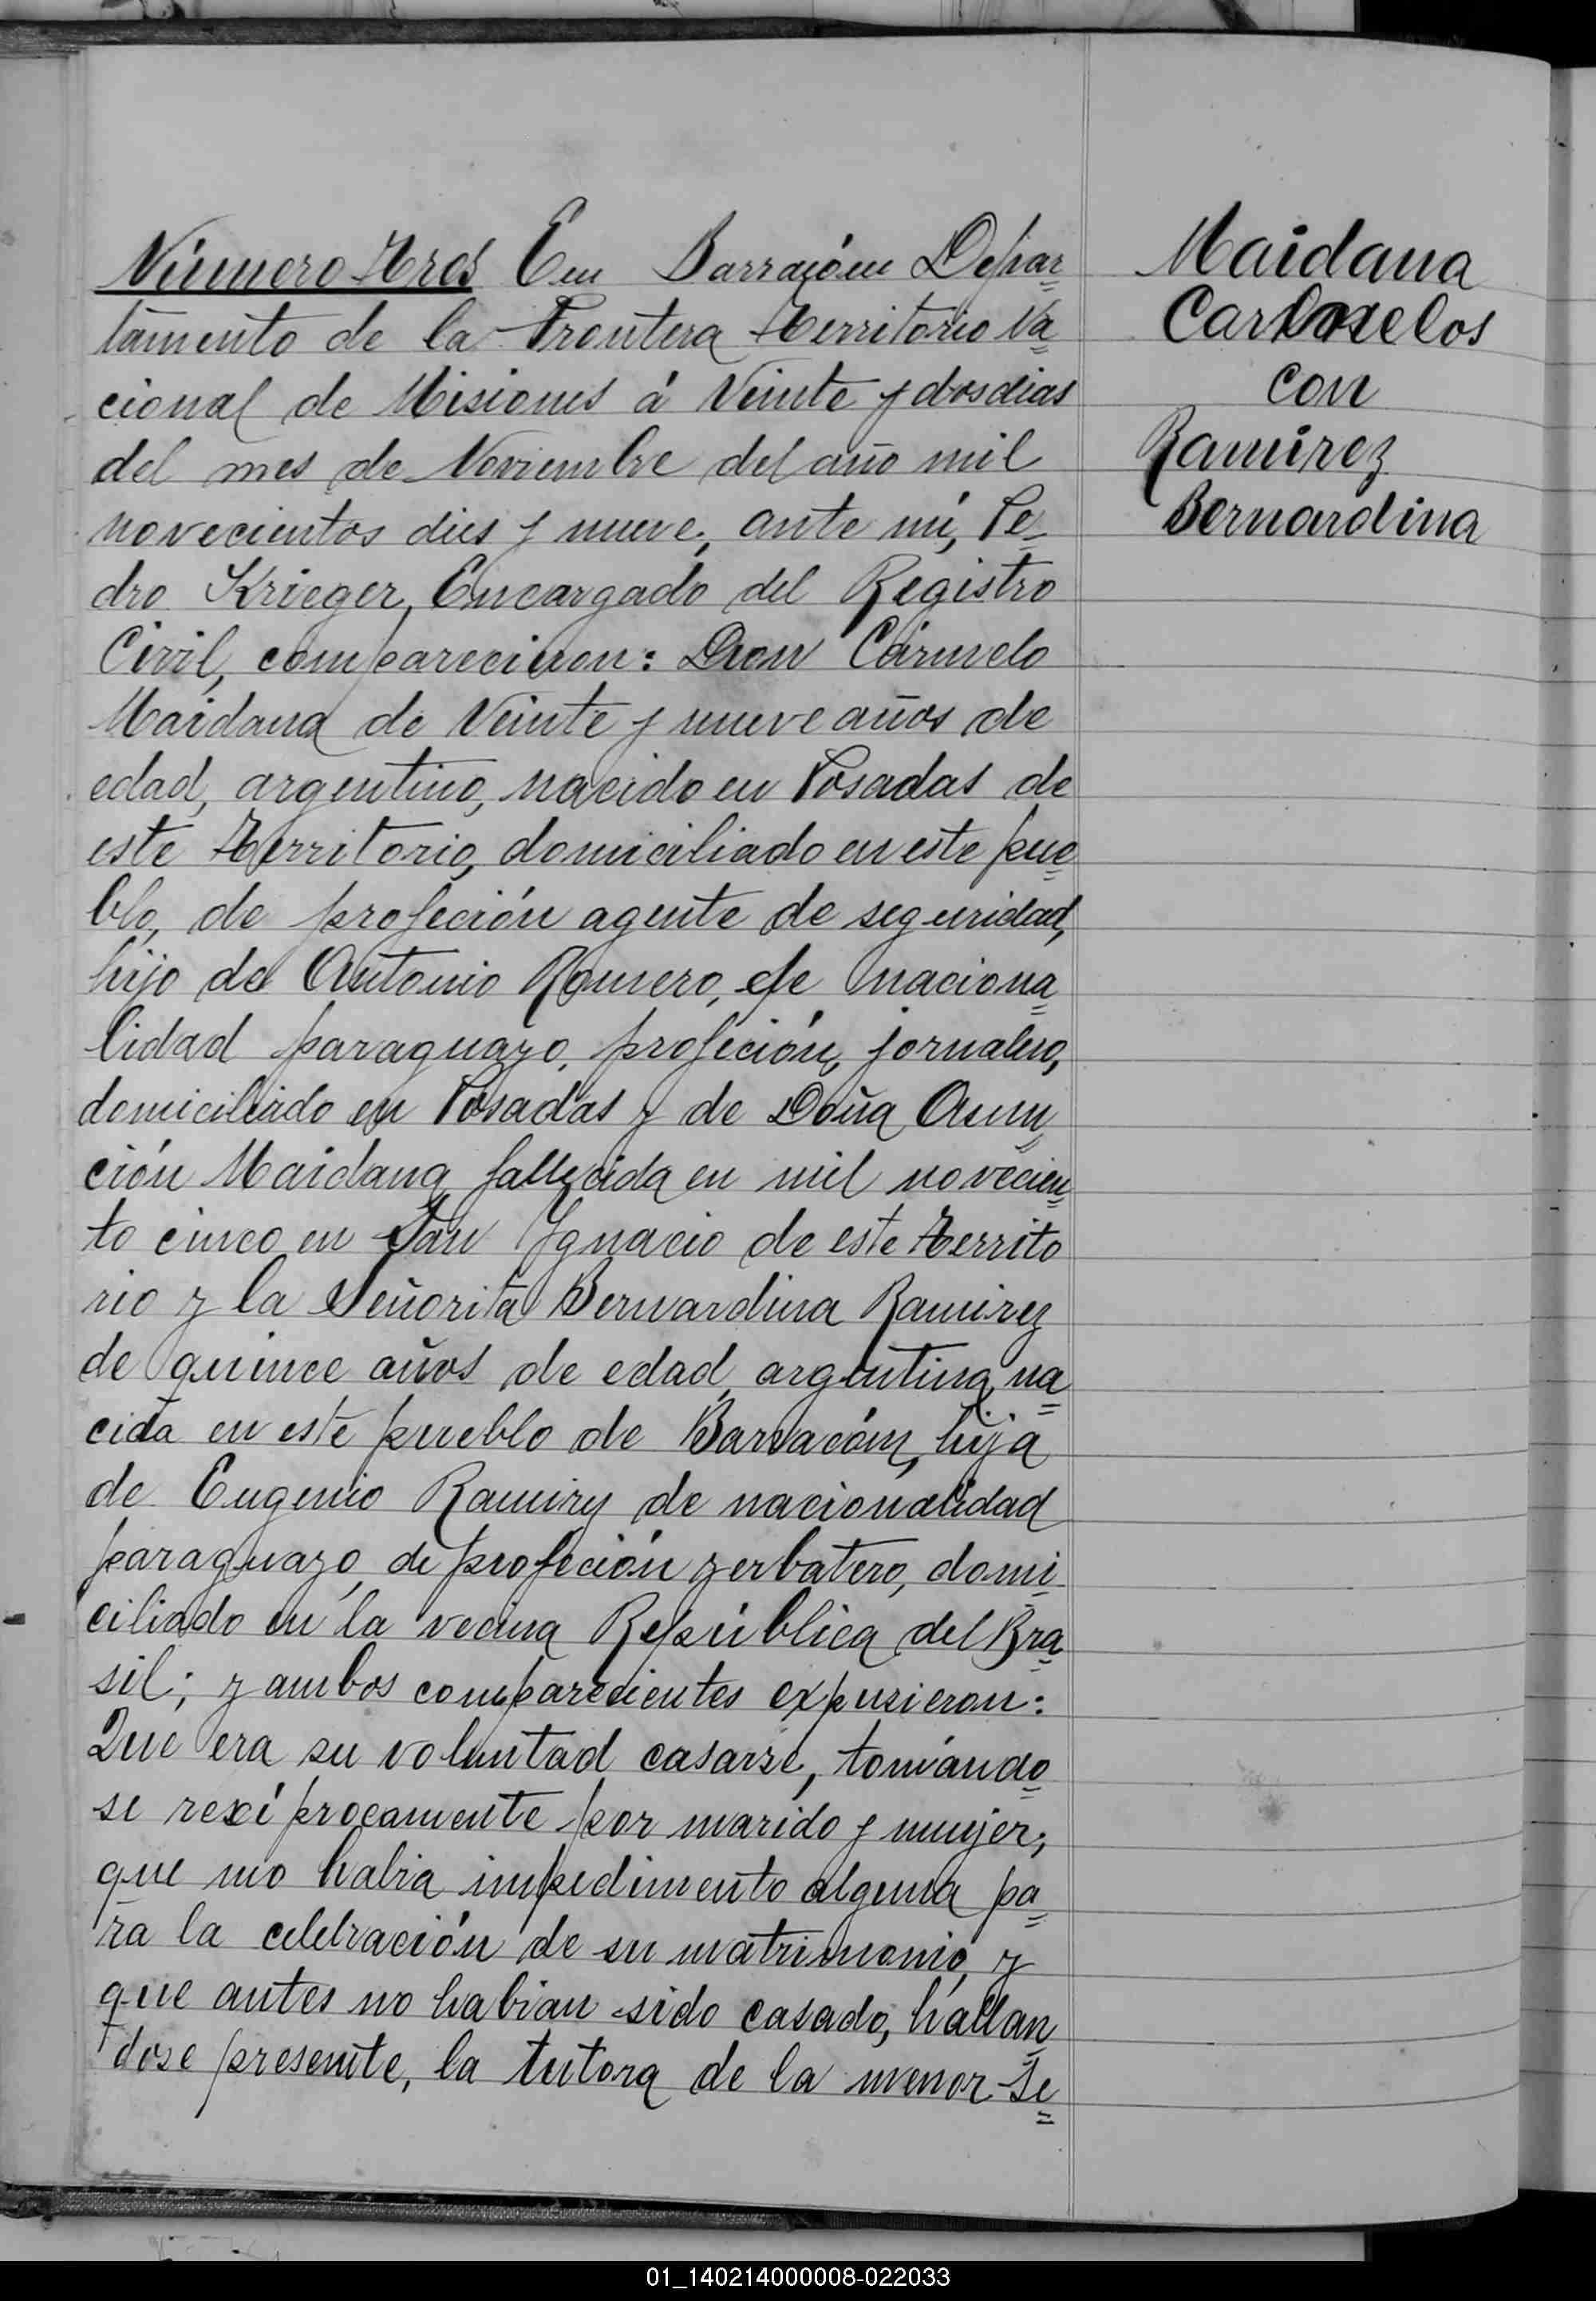 Número Tres En Barracón Depar=
tamento de la Frontera Territorio Na=
cional de Misiones á Veinte y dos dias
del mes de Noviembre del año mil
novecientos dies y nueve, ante mí, Pe=
dro Krieger, Encargado del Registro
Civil, comparecieron: Don Carmelo
Maidana de Veinte y nueve años de
edad, argentino, nacido en Posadas de
este Territorio, domiciliado en este pue=
blo, de profeción agente de seguridad,
hijo de Antonio Romero, de naciona=
lidad paraguayo, profeción, jornalero,
domiciliado en Posadas y de Doña Asun=
ción Maidana fallecida en mil novecien=
to cinco en San Ygnacio de este Territo
rio y la Señorita Bernardina Ramirez
de quince años de edad, argentina, na=
cida en este pueblo de Barracón, hija
de Eugenio Ramirez de nacionalidad
paraguayo, de profeción yerbatero, domi=
ciliado en la vecina República del Bra=
sil; y ambos comparecientes expusieron:
Que era su voluntad casarse, tomándo=
se recíprocamente por marido y mujer;
que no habia impedimento alguna pa=
ra la celebración de su matrimonio, y
que antes no habian sido casado, hallan=
dose presente, la tutora de la menor Se=
Maidana
con
Ramírez
Bernardina
01_140214000008-022033